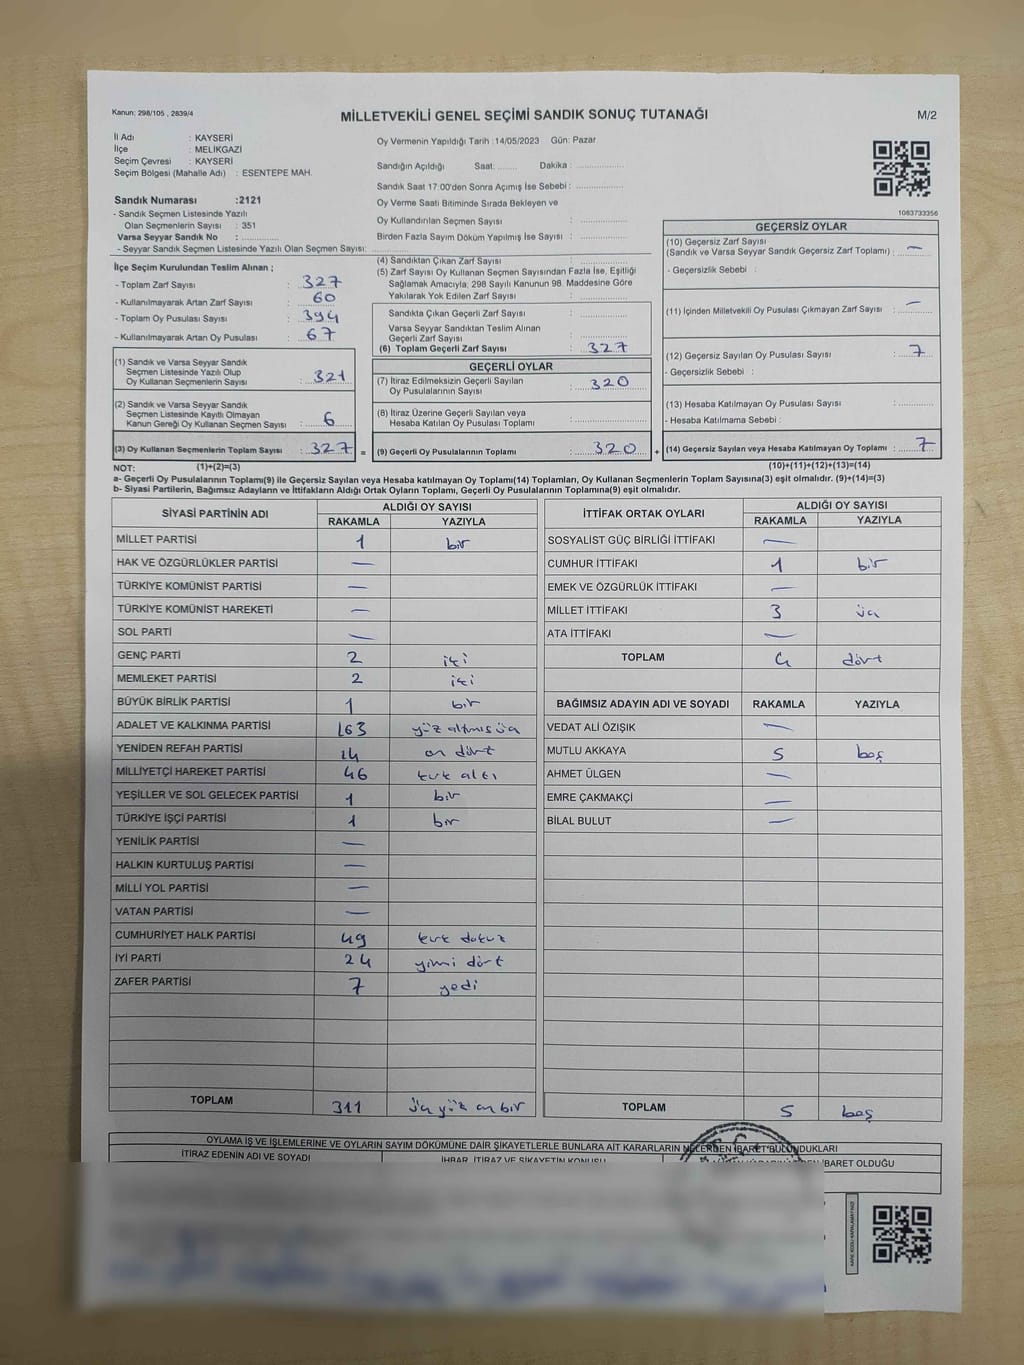 Kanun: 298/105 , 2839/4
MİLLETVEKİLİ GENEL SEÇİMİ SANDIK SONUÇ TUTANAĞI
M/2
İl Adı : KAYSERİ
İlçe : MELİKGAZİ
Seçim Çevresi : KAYSERİ
Seçim Bölgesi (Mahalle Adı) : ESENTEPE MAH.
Sandık Numarası :2121
- Sandık Seçmen Listesinde Yazılı
Olan Seçmenlerin Sayısı : 351
Varsa Seyyar Sandık No :
- Seyyar Sandık Seçmen Listesinde Yazılı Olan Seçmen Sayısı:
Oy Vermenin Yapıldığı Tarih :14/05/2023 Gün: Pazar
Sandığın Açıldığı Saat: Dakika :
Sandık Saat 17:00'den Sonra Açımış İse Sebebi :
Oy Verme Saati Bitiminde Sırada Bekleyen ve
Oy Kullandırılan Seçmen Sayısı :
Birden Fazla Sayım Döküm Yapılmış İse Sayısı :
1083733356
İlçe Seçim Kurulundan Teslim Alınan ;
- Toplam Zarf Sayısı : 327
- Kullanılmayarak Artan Zarf Sayısı : 60
- Toplam Oy Pusulası Sayısı : 394
- Kullanılmayarak Artan Oy Pusulası : 67
(1) Sandık ve Varsa Seyyar Sandık
Seçmen Listesinde Yazılı Olup
Oy Kullanan Seçmenlerin Sayısı : 321
(2) Sandık ve Varsa Seyyar Sandık
Seçmen Listesinde Kayıtlı Olmayan
Kanun Gereği Oy Kullanan Seçmen Sayısı : 6
(3) Oy Kullanan Seçmenlerin Toplam Sayısı : 327 =
(4) Sandıktan Çıkan Zarf Sayısı :
(5) Zarf Sayısı Oy Kullanan Seçmen Sayısından Fazla İse, Eşitliği
Sağlamak Amacıyla; 298 Sayılı Kanunun 98. Maddesine Göre
Yakılarak Yok Edilen Zarf Sayısı :
Sandıkta Çıkan Geçerli Zarf Sayısı :
Varsa Seyyar Sandıktan Teslim Alınan
Geçerli Zarf Sayısı :
(6) Toplam Geçerli Zarf Sayısı : 327
GEÇERLİ OYLAR
(7) İtiraz Edilmeksizin Geçerli Sayılan
Oy Pusulalarının Sayısı : 320
(8) İtiraz Üzerine Geçerli Sayılan veya
Hesaba Katılan Oy Pusulası Toplamı :
(9) Geçerli Oy Pusulalarının Toplamı : 320 +
GEÇERSİZ OYLAR
(10) Geçersiz Zarf Sayısı
(Sandık ve Varsa Seyyar Sandık Geçersiz Zarf Toplamı) : —
- Geçersizlik Sebebi :
(11) İçinden Milletvekili Oy Pusulası Çıkmayan Zarf Sayısı : —
(12) Geçersiz Sayılan Oy Pusulası Sayısı : 7
- Geçersizlik Sebebi :
(13) Hesaba Katılmayan Oy Pusulası Sayısı :
- Hesaba Katılmama Sebebi :
(14) Geçersiz Sayılan veya Hesaba Katılmayan Oy Toplamı : 7
NOT: (1)+(2)=(3) (10)+(11)+(12)+(13)=(14)
a- Geçerli Oy Pusulalarının Toplamı(9) ile Geçersiz Sayılan veya Hesaba katılmayan Oy Toplamı(14) Toplamları, Oy Kullanan Seçmenlerin Toplam Sayısına(3) eşit olmalıdır. (9)+(14)=(3)
b- Siyasi Partilerin, Bağımsız Adayların ve İttifakların Aldığı Ortak Oyların Toplamı, Geçerli Oy Pusulalarının Toplamına(9) eşit olmalıdır.
SİYASİ PARTİNİN ADI ALDIĞI OY SAYISI
RAKAMLA YAZIYLA
MİLLET PARTİSİ 1 bir
HAK VE ÖZGÜRLÜKLER PARTİSİ —
TÜRKİYE KOMÜNİST PARTİSİ —
TÜRKİYE KOMÜNİST HAREKETİ —
SOL PARTİ —
GENÇ PARTİ 2 iki
MEMLEKET PARTİSİ 2 iki
BÜYÜK BİRLİK PARTİSİ 1 bir
ADALET VE KALKINMA PARTİSİ 163 yüz altmış üç
YENİDEN REFAH PARTİSİ 14 on dört
MİLLİYETÇİ HAREKET PARTİSİ 46 kırk altı
YEŞİLLER VE SOL GELECEK PARTİSİ 1 bir
TÜRKİYE İŞÇİ PARTİSİ 1 bir
YENİLİK PARTİSİ —
HALKIN KURTULUŞ PARTİSİ —
MİLLİ YOL PARTİSİ —
VATAN PARTİSİ —
CUMHURİYET HALK PARTİSİ 49 kırk dokuz
İYİ PARTİ 24 yirmi dört
ZAFER PARTİSİ 7 yedi
TOPLAM 311 üç yüz on bir
İTTİFAK ORTAK OYLARI ALDIĞI OY SAYISI
RAKAMLA YAZIYLA
SOSYALİST GÜÇ BİRLİĞİ İTTİFAKI —
CUMHUR İTTİFAKI 1 bir
EMEK VE ÖZGÜRLÜK İTTİFAKI —
MİLLET İTTİFAKI 3 üç
ATA İTTİFAKI —
TOPLAM 4 dört
BAĞIMSIZ ADAYIN ADI VE SOYADI RAKAMLA YAZIYLA
VEDAT ALİ ÖZIŞIK —
MUTLU AKKAYA 5 beş
AHMET ÜLGEN —
EMRE ÇAKMAKÇİ —
BİLAL BULUT —
TOPLAM 5 beş
OYLAMA İŞ VE İŞLEMLERİNE VE OYLARIN SAYIM DÖKÜMÜNE DAİR ŞİKAYETLERLE BUNLARA AİT KARARLARIN NELERDEN İBARET BULUNDUKLARI
İTİRAZ EDENİN ADI VE SOYADI İHBAR, İTİRAZ VE ŞİKAYETİN KONUSU İBARET OLDUĞU